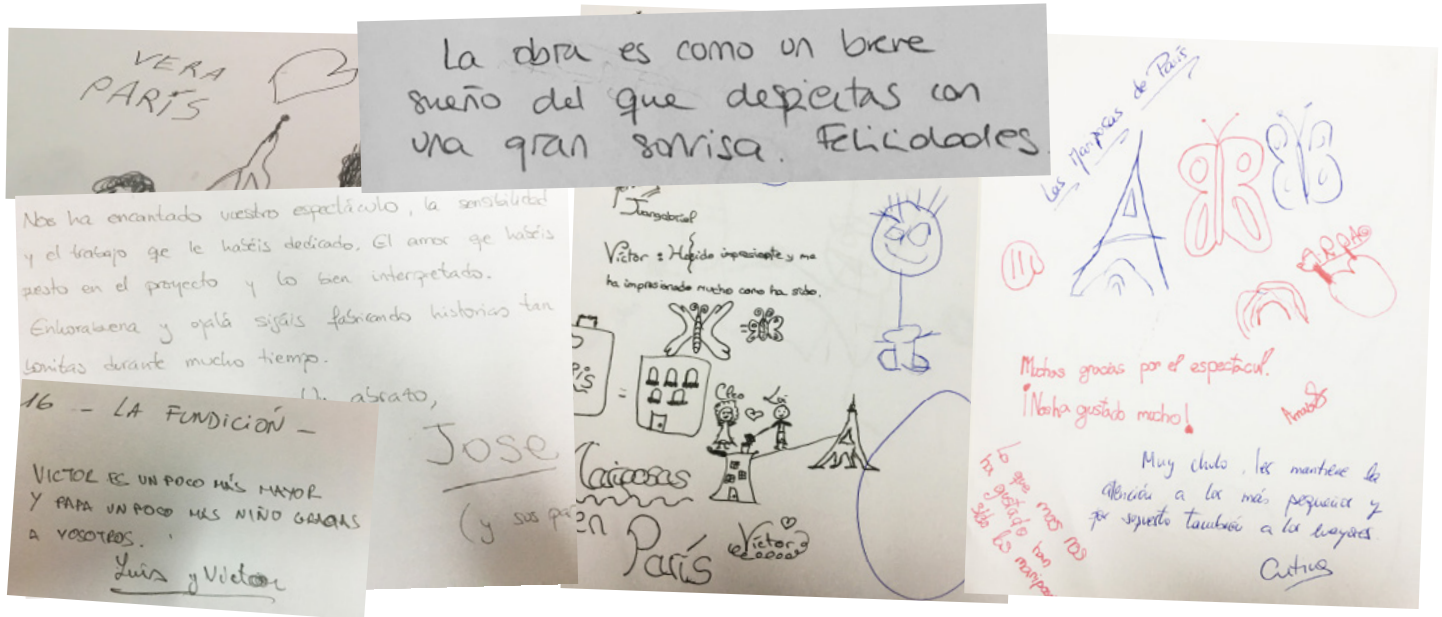 VERA
PARÍS
La obra es como un breve
sueño del que despiertas con
una gran sonrisa. Felicidades.
Nos ha encantado vuestro espectáculo, la sensibilidad
y el trabajo qe le habéis dedicado. El amor qe habéis
pesto en el proyecto y lo bien interpretado.
Enhorabuena y ojalá sigáis fabricando historias tan
bonitas durante mucho tiempo.
Un abrazo,
Jose
(y sus pa
16 - LA FUNDICIÓN -
VICTOR ES UN POCO MÁS MAYOR
Y PAPA UN POCO MÁS NIÑO GRACIAS
A VOSOTROS.
Luis y Victor
Juangabriel
Víctor: Ha sido impresionante y me
ha impresionado mucho como ha sido.
ÍS
=
=
Cleo
Loi
Mariposas
en
París
Víctor
Las Mariposas de París
Muchas gracias por el espectacul.
¡Nos ha gustado mucho!
Lo que mos nos
ha gustado han
sido las maripos
Muy chulo, les mantiene la
atención a los más pequeños y
por supuesto también a los mayores.